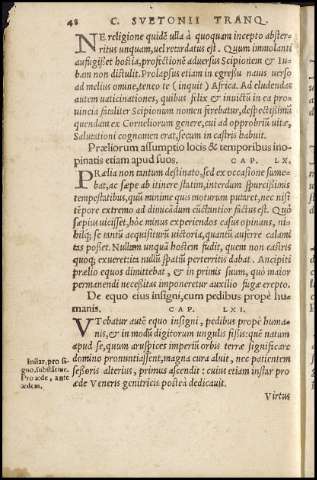 48 C. SVETONII TRANQ.
NE religione quidē ulla à quoquam incepto abster-
ritus unquam, uel retardatus est. Quum immolanti
aufugisset hostia, profectionē aduersus Scipionem & Iu-
bam non distulit. Prolapsus etiam in egressu nauis uerso
ad melius omine, teneo te (inquit) Africa. Ad eludendas
autem uaticinationes, quibus felix & inuictū in ea pro-
uincia fataliter Scipionum nomen ferebatur, despectissimū
quendam ex Corneliorum genere, cui ad opprobriū uitæ,
Salutioni cognomen erat, secum in castris habuit.
Præliorum assumptio locis & temporibus ino-
pinatis etiam apud suos. CAP. LX.
PRælia non tantum destinato, sed ex occasione sume-
bat, ac sæpe ab itinere statim, interdum spurcissimis
tempestatibus, quū minime quis moturum putaret, nec nisi
tēpore extremo ad dimicādum cūctantior factus est. Quò
sæpius uicisset, hòc minus experiendos casus opinans, ni-
hilq; se tantū acquisiturū uictoria, quantū auferre calami-
tas posset. Nullum unquā hostem fudit, quem non castris
quoq; exueret: ita nullū spatiū perterritis dabat. Ancipiti
prælio equos dimittebat, & in primis suum, quò maior
permanendi necessitas imponeretur auxilio fugæ erepto.
De equo eius insigni, cum pedibus propè hu-
manis. CAP. LXI.
VTebatur autē equo insigni, pedibus propè huma-
nis, & in modū digitorum ungulis fissis: quē natum
apud se, quum aruspices imperiū orbis terræ significare
domino pronuntiassent, magna cura aluit, nec patientem
sessoris alterius, primus ascendit: cuius etiam instar pro
æde Veneris genitricis posteà dedicauit.
Instar, pro si-
gno, substātiue.
Pro æde, ante
ædem.
Virtus